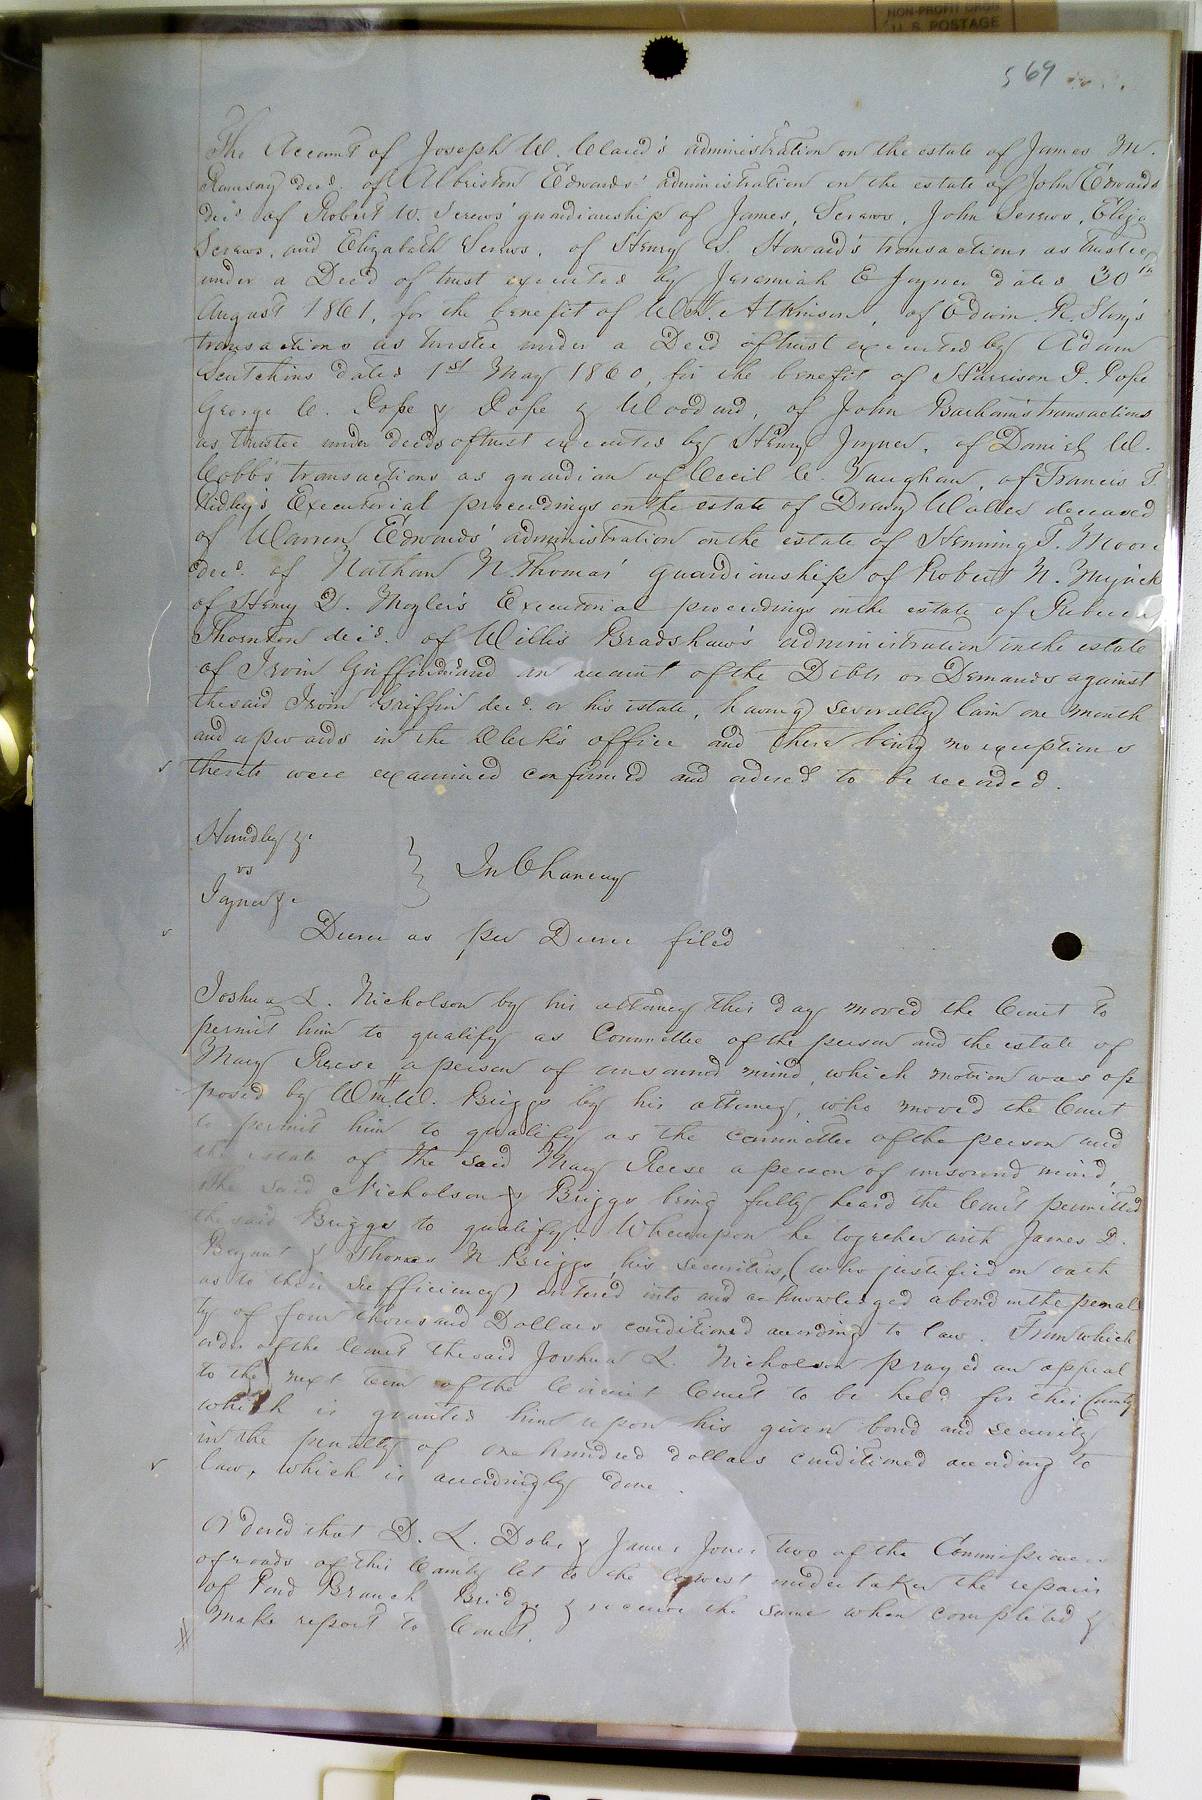 NON-PROFIT ORGN
U.S. POSTAGE
569
The Account of Joseph W. Claud's administration on the estate of James M.
Ramsay decd. of Albriston Edwards' administration on the estate of John Edwards
decd. of Robert W. Screws' guardianship of James, Screws, John Screws, Eliza
Screws, and Elizabeth Screws, of Henry S. Howard's transactions as trustee
under a Deed of trust executed by Jeremiah E Joyner dated 30th
August 1861, for the benefit of W. Atkinson, of Edwin R. transactions
as trustee under a Deed of trust executed by Adam
Scutchins dated 1st May 1860, for the benefit of Harrison P. Pope
George W. Pope & Pope & Woodard, of John Barham's transactions
as trustee under deeds of trust executed by Henry Joyner, of Daniel W.
Cobb's transactions as guardian of Cecil C. Vaughan, of Francis T.
Ridley's Executorial proceedings on the estate of Drewry Waller deceased
of Warren Edwards' administration on the estate of Henning T. Moore
decd. of Nathan N. Thomas' guardianship of Robert N. Myrick
of Henry D. Moyler's Executorial proceedings on the estate of Rebecca
Thornton decd. of Willis Bradshaw's administration on the estate
of Irvin Griffin decd and an account of the Debts or Demands against
the said Irvin Griffin decd. or his estate, having severally lain one month
and upwards in the Clerk's office and there being no exceptions
thereto were examined confirmed and ordered to be recorded.
Hundley &c
vs } In Chancery
Joyner &c
Decree as per Decree filed
Joshua L. Nicholson by his attorney this day moved the Court to
permit him to qualify as Committee of the person and the estate of
Mary Reese a person of unsound mind, which motion was op
posed by Wm. W. Briggs by his attorney, who moved the Court
to permit him to qualify as the committee of the person and
the estate of the said Mary Reese a person of unsound mind,
The said Nicholson & Briggs being fully heard the Court permitted
the said Briggs to qualify. Whereupon he together with James D.
Bryant & Thomas N. Briggs, his securities, (who justified on oath
as to their sufficiency) entered into and acknowledged a bond in the penal
ty of four thousand Dollars conditioned according to law. From which
order of the Court the said Joshua L. Nicholson prayed an appeal
to the next term of the Circuit Court to be held for this County
which is granted him upon his given bond and security
in the penalty of one hundred dollars conditioned according to
law, which is accordingly done.
Ordered that D. L. Doles & James Jones two of the Commissioners
of roads of this County let to the lowest undertaker the repairs
of Pond Branch Bridge & receive the same when completed &
make report to Court.